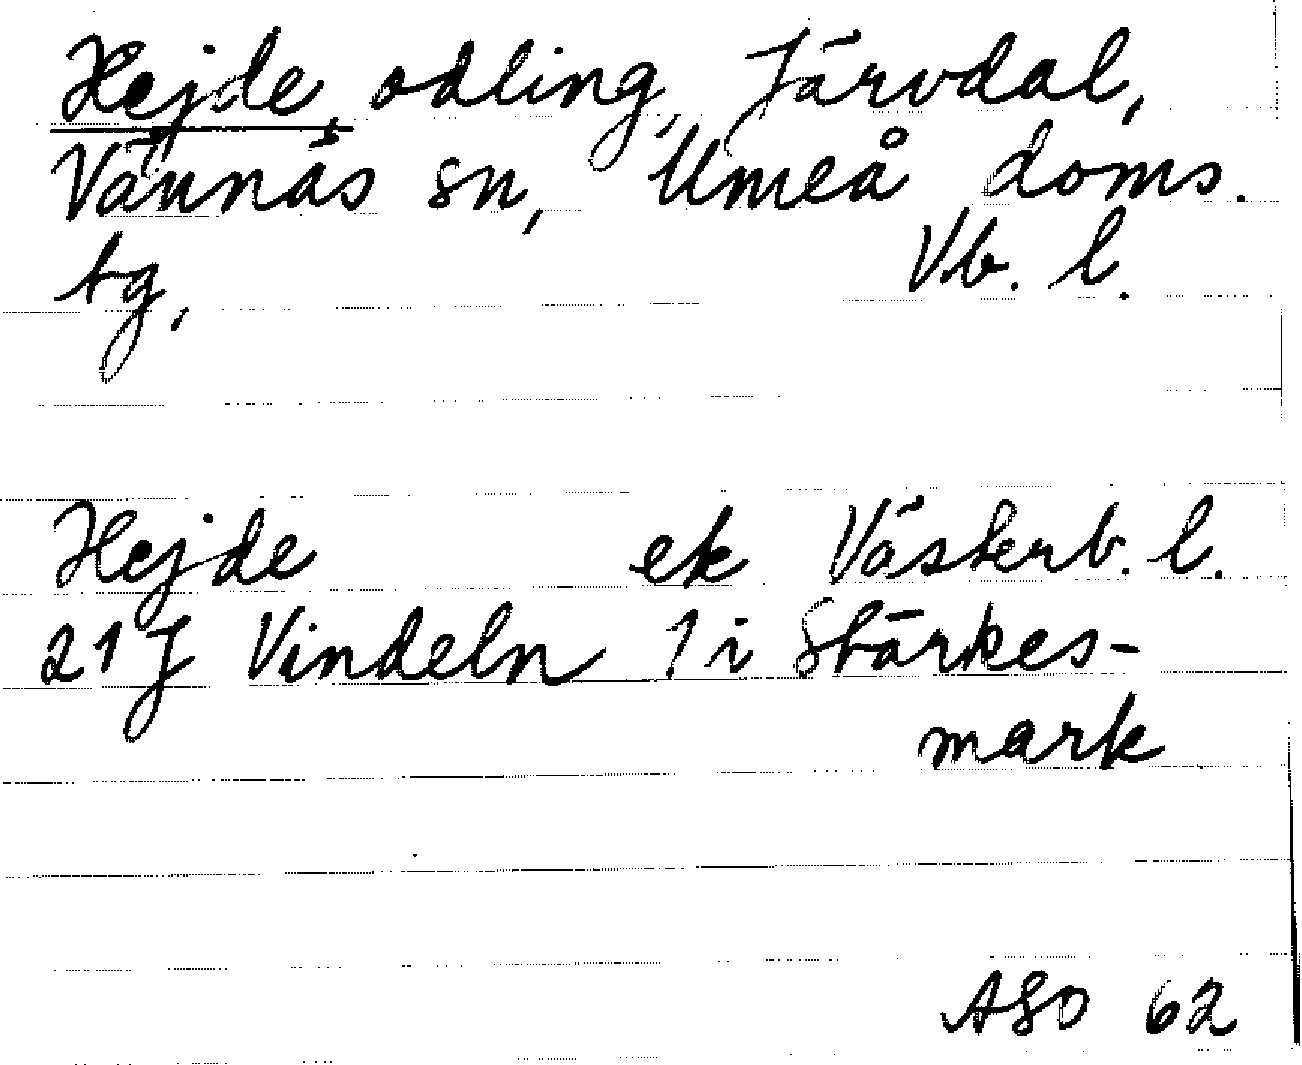 Hejde, odling, Järvdal,
Vännäs sn, Umeå doms.
tg, Vb. l.
Hejde ek Västerb. l.
21 J Vindeln 1 i Stärkes-
mark
ASO 62